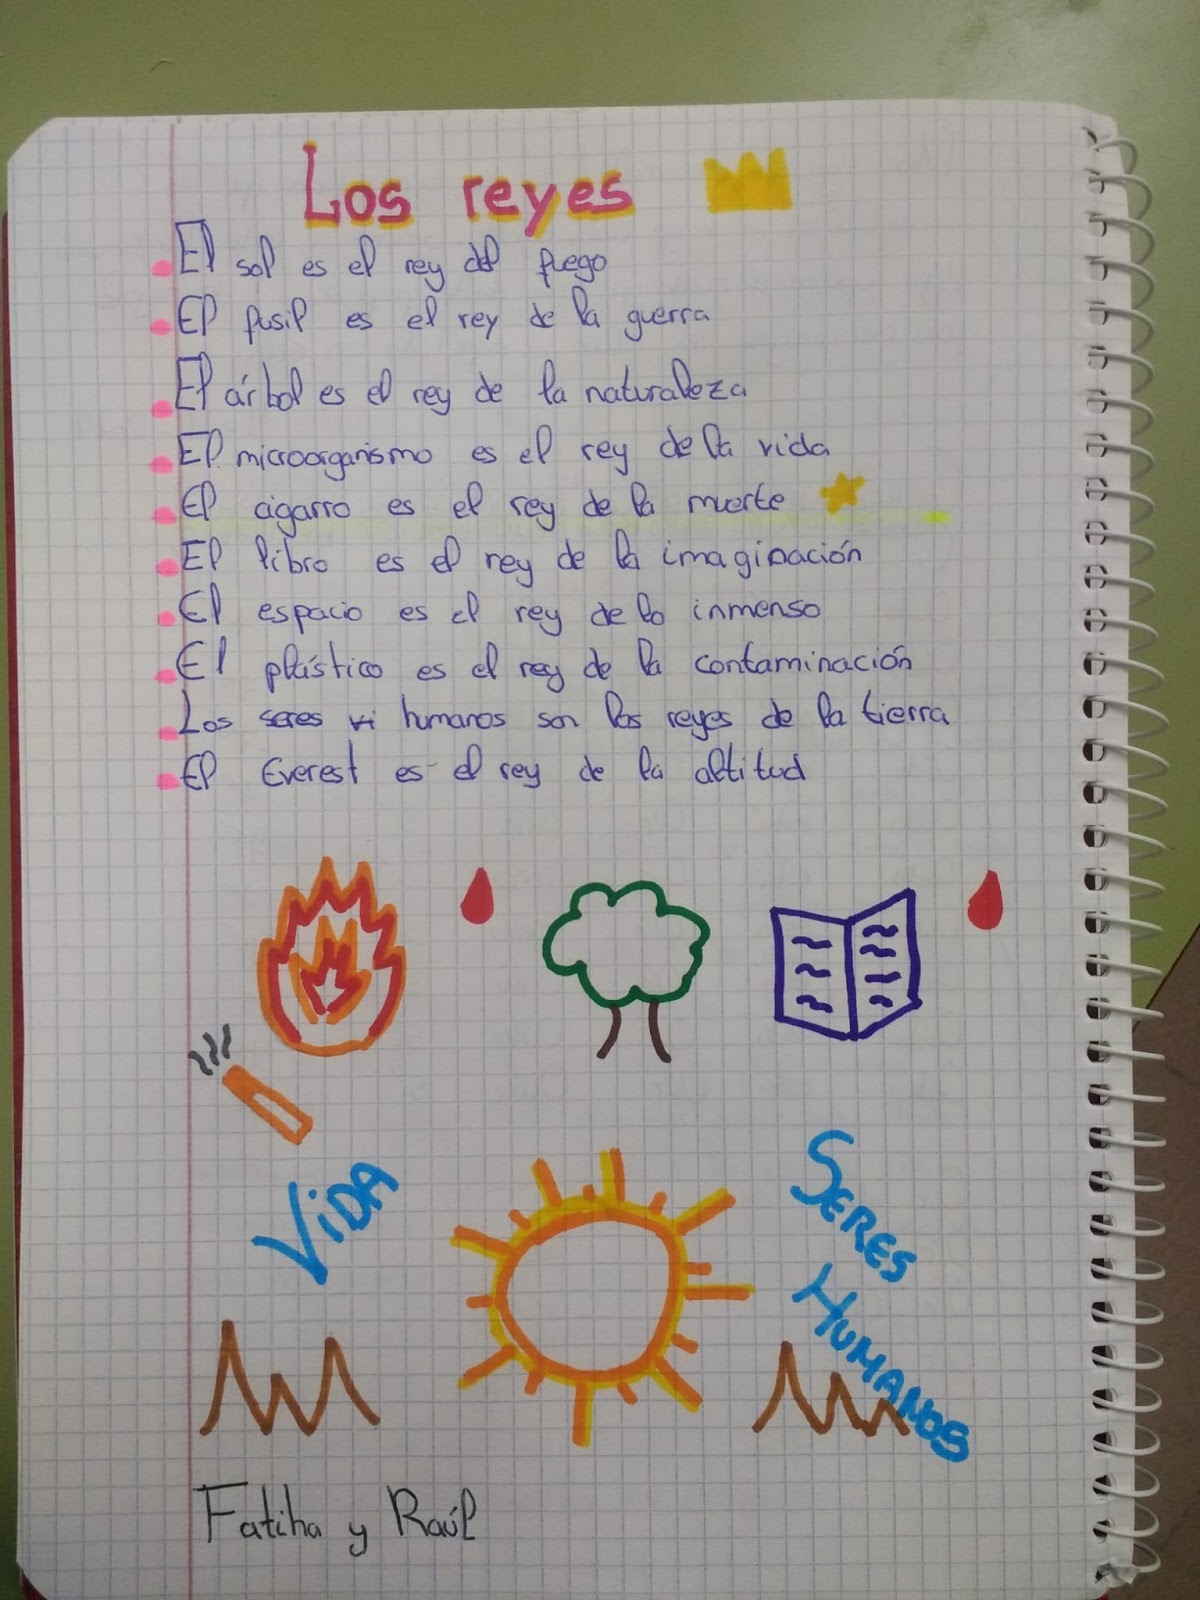 Los reyes
El sol es el rey del fuego
El fusil es el rey de la guerra
El árbol es el rey de la naturaleza
El microorganismo es el rey de la vida
El cigarro es el rey de la muerte
El libro es el rey de la imaginación
El espacio es el rey de lo inmenso
El plástico es el rey de la contaminación
Los seres humanos son los reyes de la tierra
El Everest es el rey de la altitud
VIDA
SERES
HUMANOS
Fatiha y Raúl